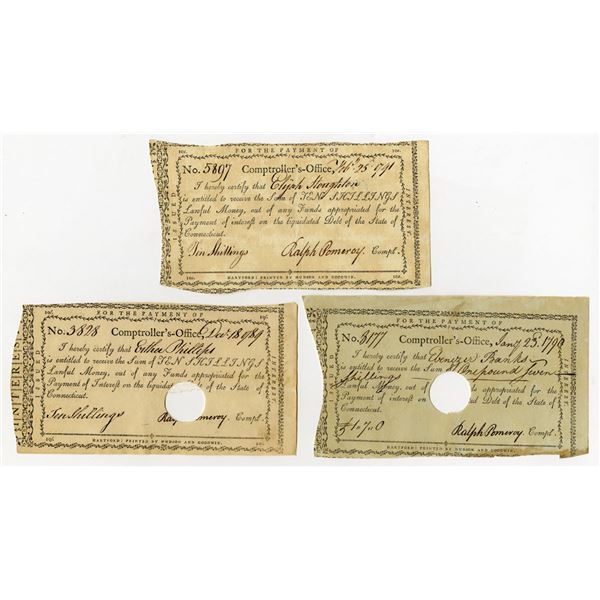 10s. FOR THE PAYMENT OF 10s.
No. 5897 Comptroller's-Office, Feb. 25 1791
I hereby certify that Elijah Houghton
is entitled to receive the Sum of TEN SHILLINGS
Lawful Money, out of any Funds appropriated for the
Payment of interest on the liquidated Debt of the State of
Connecticut.
Ten Shillings Ralph Pomeroy, Compt.
10s. HARTFORD: PRINTED BY HUDSON AND GOODWIN. 10s.
ISSUED
INTEREST.
10s. FOR THE PAYMENT OF 10s.
No. 5828 Comptroller's-Office, Dec. 18 1789
I hereby certify that Esther Phillips
is entitled to receive the Sum of TEN SHILLINGS
Lawful Money, out of any Funds appropriated for the
Payment of Interest on the liquidated of the State of
Connecticut.
Ten Shillings Ral Pomeroy Compt.
10s. HARTFORD: PRINTED BY HUDSON AND GOODWIN. 10s.
INTERE
ISSUED
INTEREST.
FOR THE PAYMENT OF
No. 5177 Comptroller's-Office, Jany 23. 1790
I hereby certify that Ebenezer Banks
is entitled to receive the Sum of One pound Seven
Shillings
Lawful Money, out of appropriated for the
Payment of interest on Debt of the State of
Connecticut.
£1.7.0 Ralph Pomeroy Compt.
HARTFORD: PRINTED BY HUDSON AND GOODWIN.
ISSUED
INTEREST.